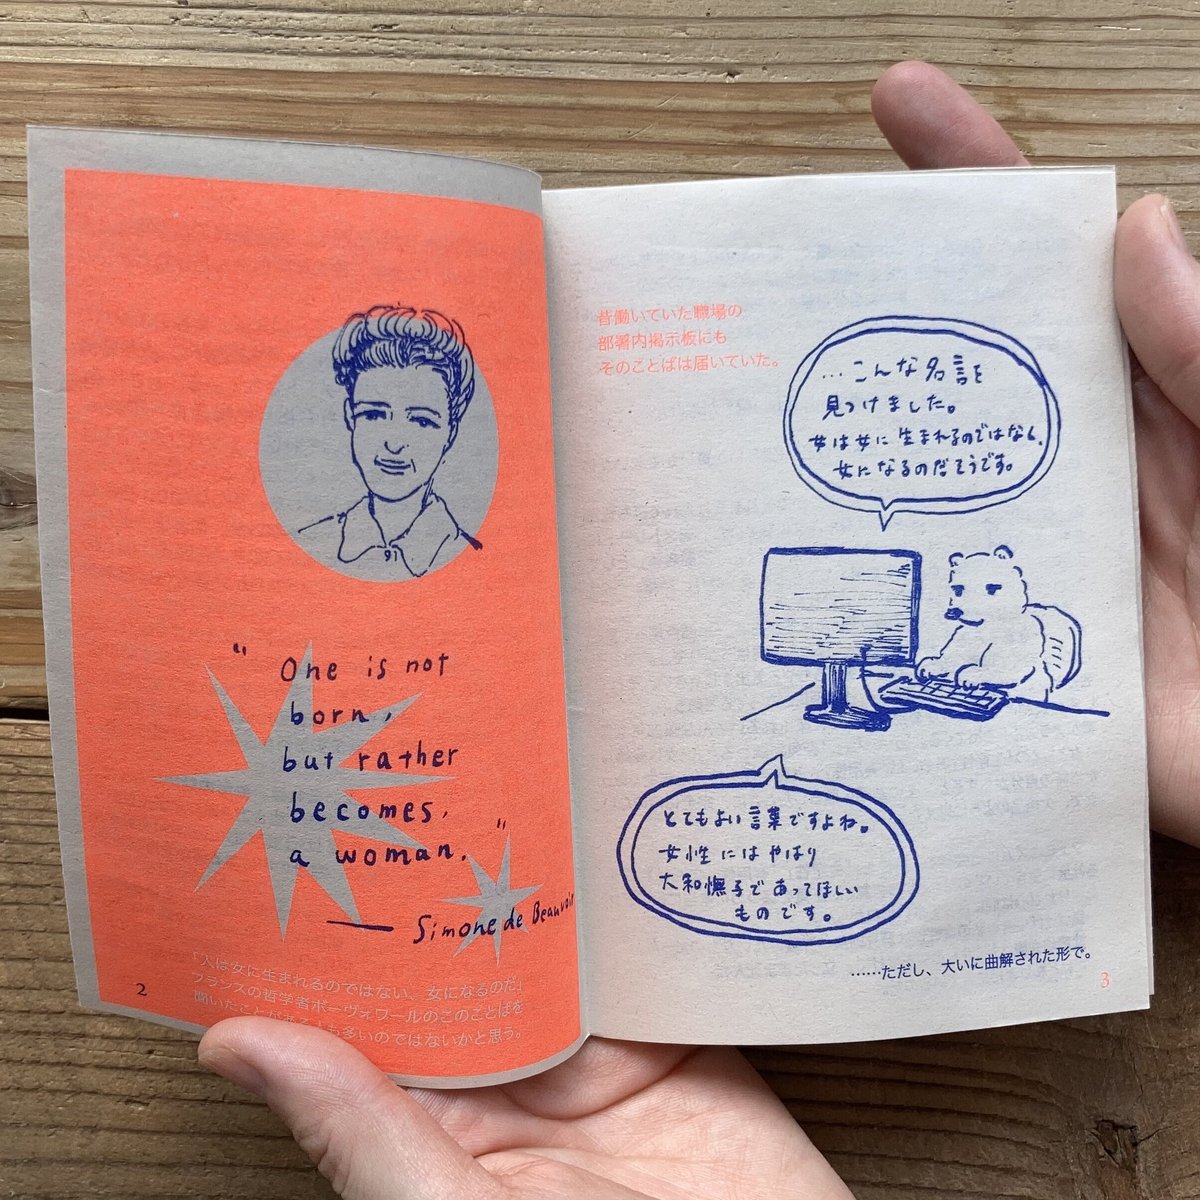 " One is not
born,
but rather
becomes,
a woman. "
— Simone de Beauvoir
「人は女に生まれるのではない、女になるのだ」
フランスの哲学者ボーヴォワールのこのことばを
聞いたことがある人も多いのではないかと思う。
2
昔働いていた職場の
部署内掲示板にも
そのことばは届いていた。
…こんな名言を
見つけました。
女は女に生まれるのではなく、
女になるのだそうです。
とてもよい言葉ですよね。
女性にはやはり
大和憮子であってほしい
ものです。
……ただし、大いに曲解された形で。
3